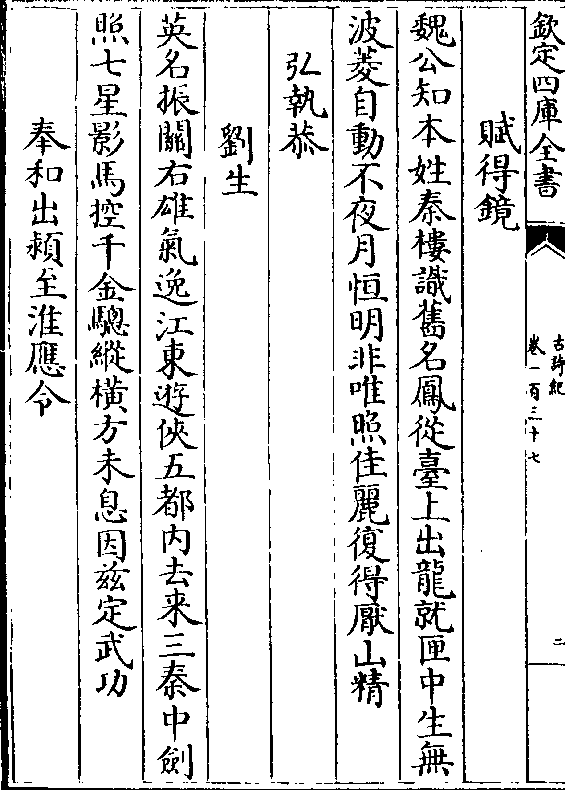 欽定四庫全書
古詩紀
卷一百三十七
二
賦得鏡
魏公知本姓秦樓識舊名鳳從臺上出龍就匣中生無
波菱自動不夜月恒明非唯照佳麗復得厭山精
弘執恭
劉生
英名振關右雄氣逸江東遊俠五都内去来三秦中劍
照七星影馬控千金驄縱横方未息因兹定武功
奉和出頴至淮應令